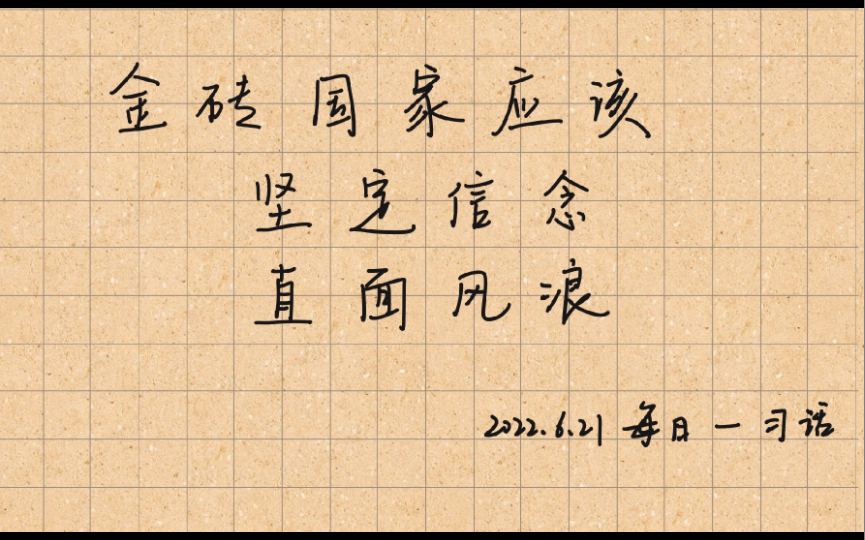 金砖国家应该
坚定信念
直面风浪
2022.6.21 每日一习话